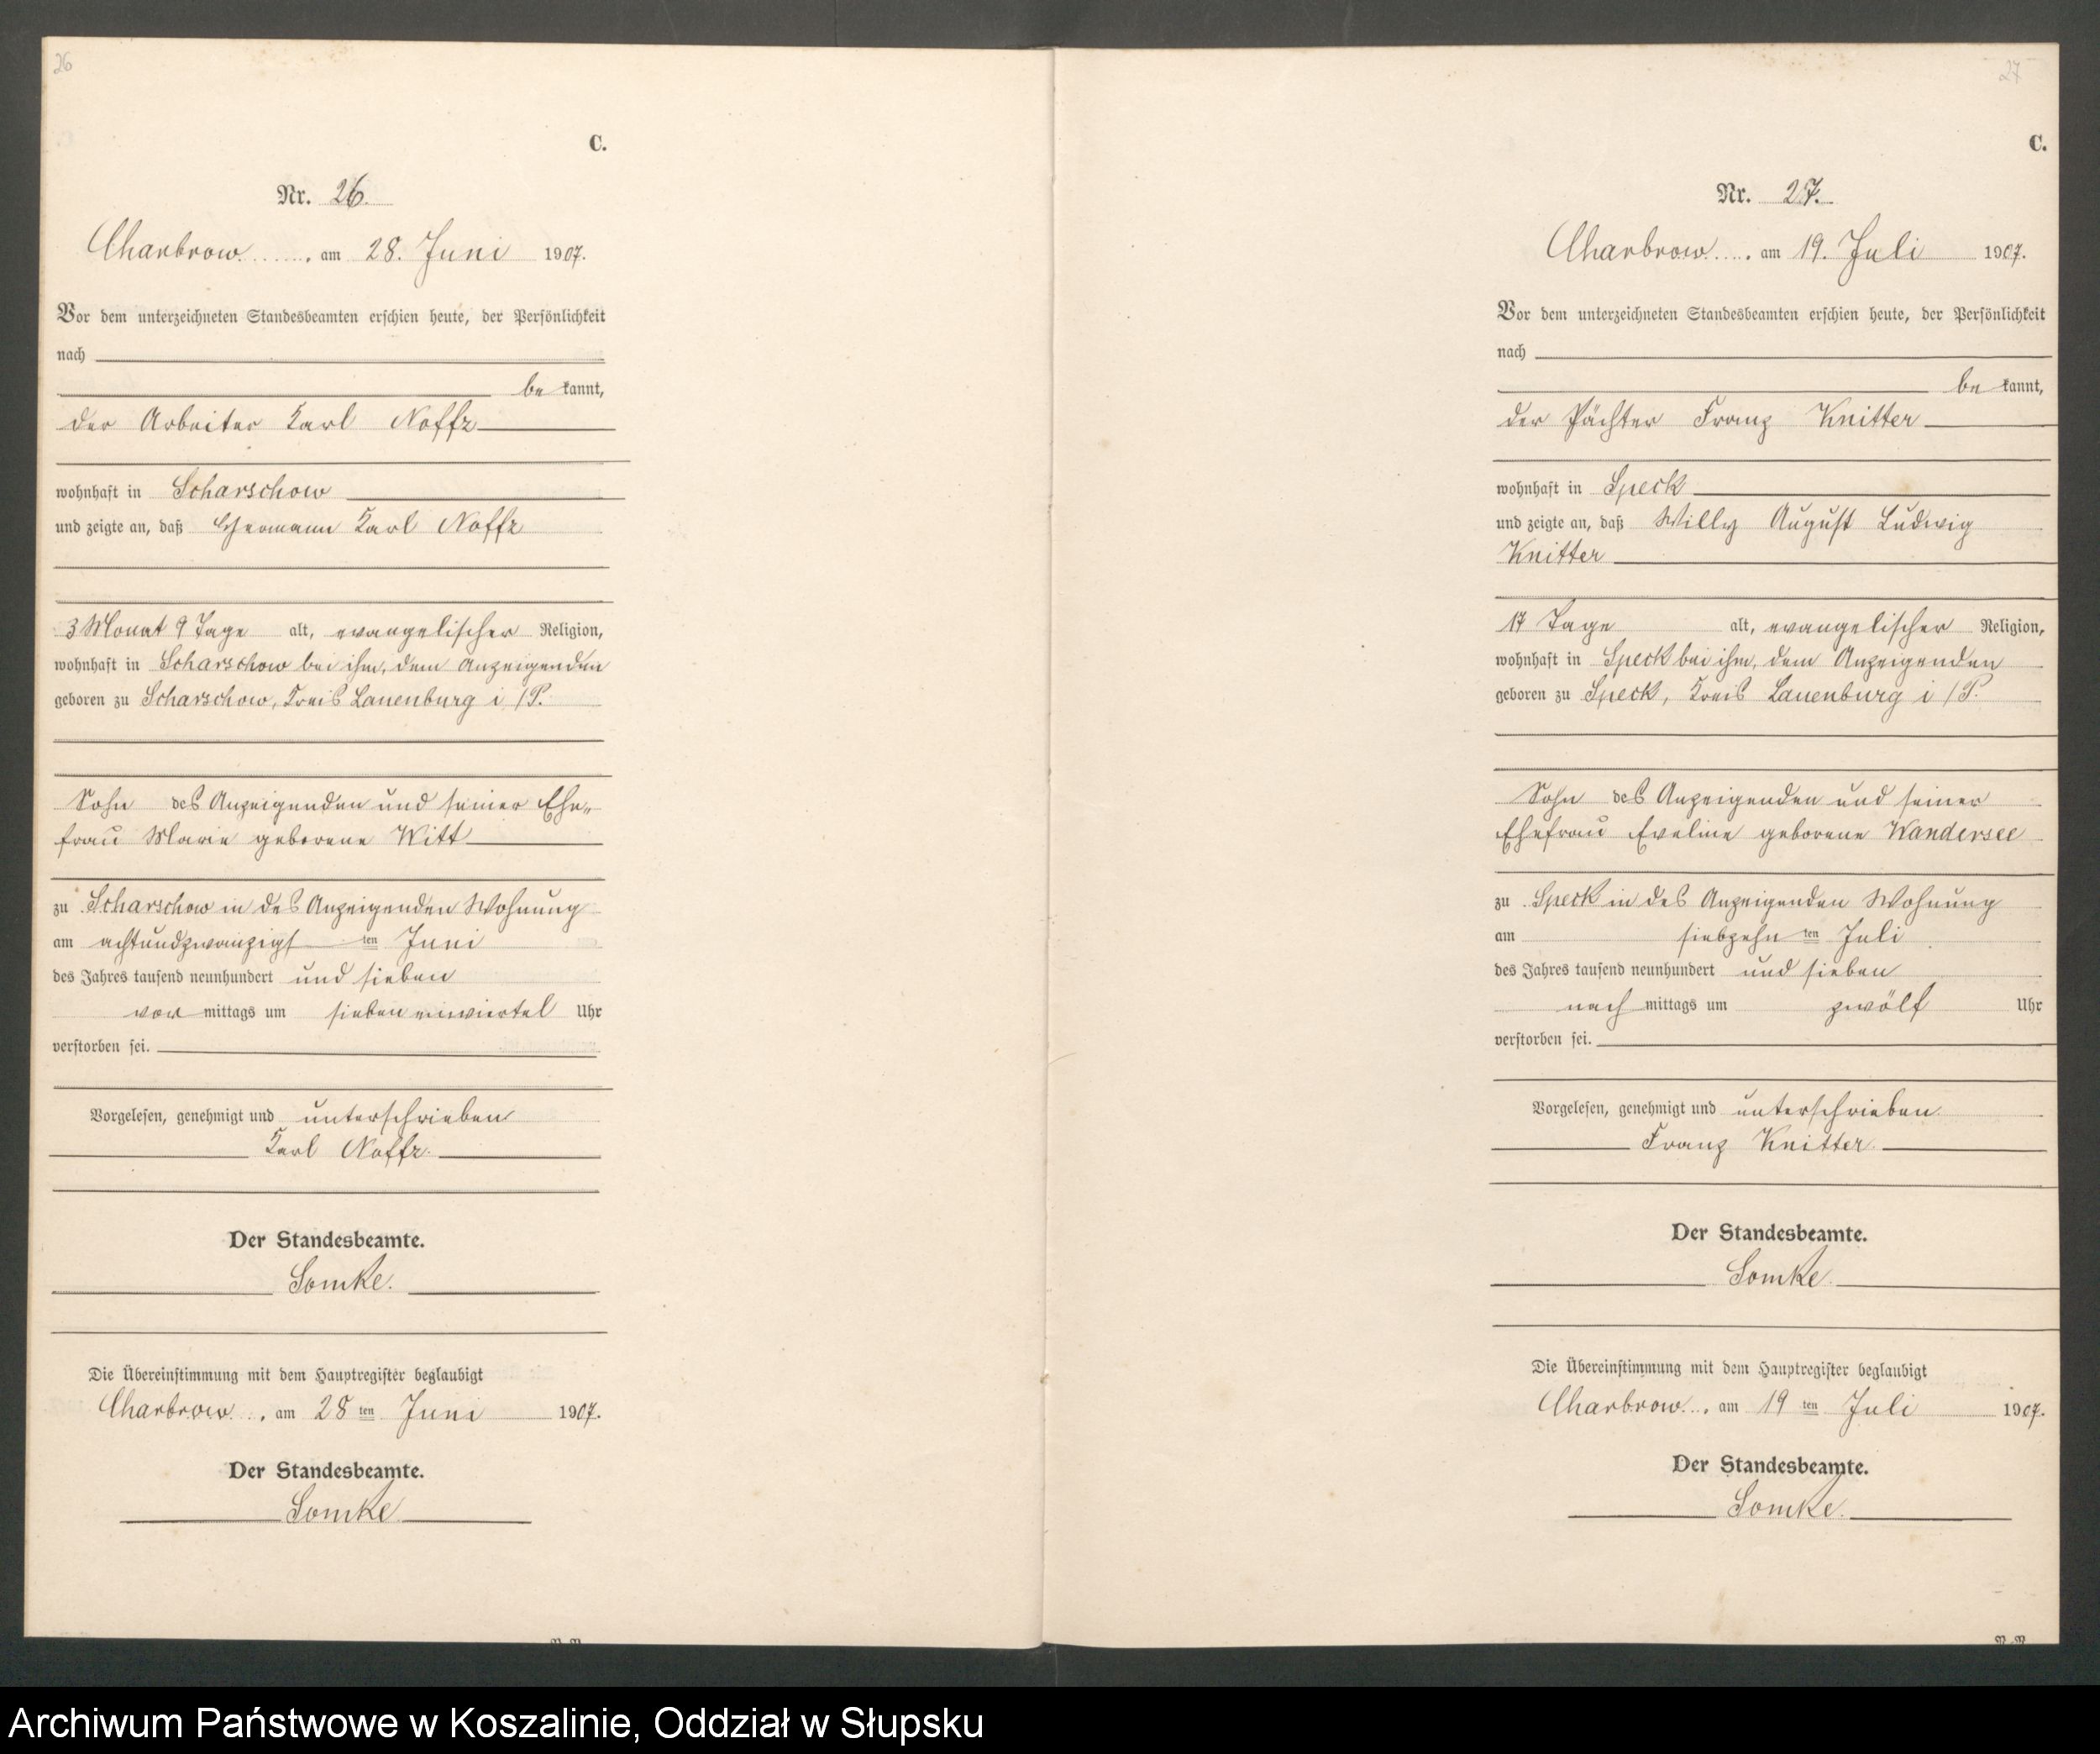 26
C.
Nr. 26.
Charbrow, am 28. Juni 1907.
Vor dem unterzeichneten Standesbeamten erschien heute, der Persönlichkeit
nach
be kannt,
der Arbeiter Karl Noffz
wohnhaft in Scharschow
und zeigte an, daß Hermann Karl Noffz
3 Monat 9 Tage alt, evangelischer Religion,
wohnhaft in Scharschow bei ihm, dem Anzeigenden
geboren zu Scharschow, Kreis Lauenburg i/P.
Sohn des Anzeigenden und seiner Ehe-
frau Marie geborene Witt
zu Scharschow in des Anzeigenden Wohnung
am achtundzwanzigsten Juni
des Jahres tausend neunhundert und sieben
vor mittags um sieben einviertel Uhr
verstorben sei.
Vorgelesen, genehmigt und unterschrieben
Karl Noffz.
Der Standesbeamte.
Somke.
Die Übereinstimmung mit dem Hauptregister beglaubigt
Charbrow, am 28ten Juni 1907.
Der Standesbeamte.
Somke
27
C.
Nr. 27.
Charbrow, am 19. Juli 1907.
Vor dem unterzeichneten Standesbeamten erschien heute, der Persönlichkeit
nach
be kannt,
der Pächter Franz Knitter
wohnhaft in Speck
und zeigte an, daß Willy August Ludwig
Knitter
17 Tage alt, evangelischer Religion,
wohnhaft in Speck bei ihm, dem Anzeigenden
geboren zu Speck, Kreis Lauenburg i/P.
Sohn des Anzeigenden und seiner
Ehefrau Eveline geborene Wandersee
zu Speck in des Anzeigenden Wohnung
am siebzehnten Juli
des Jahres tausend neunhundert und sieben
nach mittags um zwölf Uhr
verstorben sei.
Vorgelesen, genehmigt und unterschrieben.
Franz Knitter.
Der Standesbeamte.
Somke.
Die Übereinstimmung mit dem Hauptregister beglaubigt
Charbrow, am 19ten Juli 1907.
Der Standesbeamte.
Somke.
Archiwum Państwowe w Koszalinie, Oddział w Słupsku